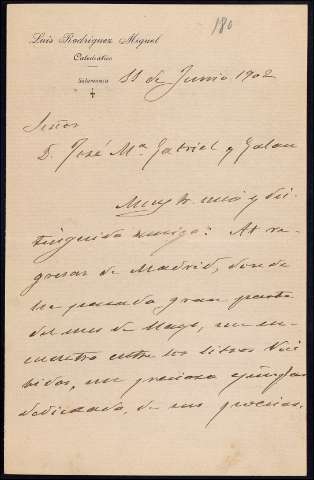 180
Luis Rodríguez Miguel
Catedrático
Salamanca
11 de Junio 1902
Señor
D. José Mª Gabriel y Galan
Muy Sr. mio y dis-
tinguido amigo: Al re-
gresar de Madrid, donde
he pasado gran parte
del mes de Mayo, me en-
cuentro entre los libros reci-
bidos, un precioso ejemplar
dedicado, de sus poesias.